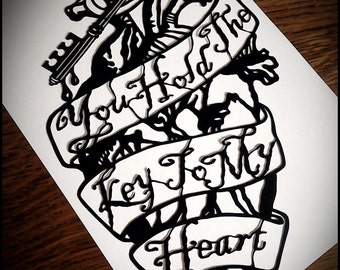 You Hold The
Key To My
Heart